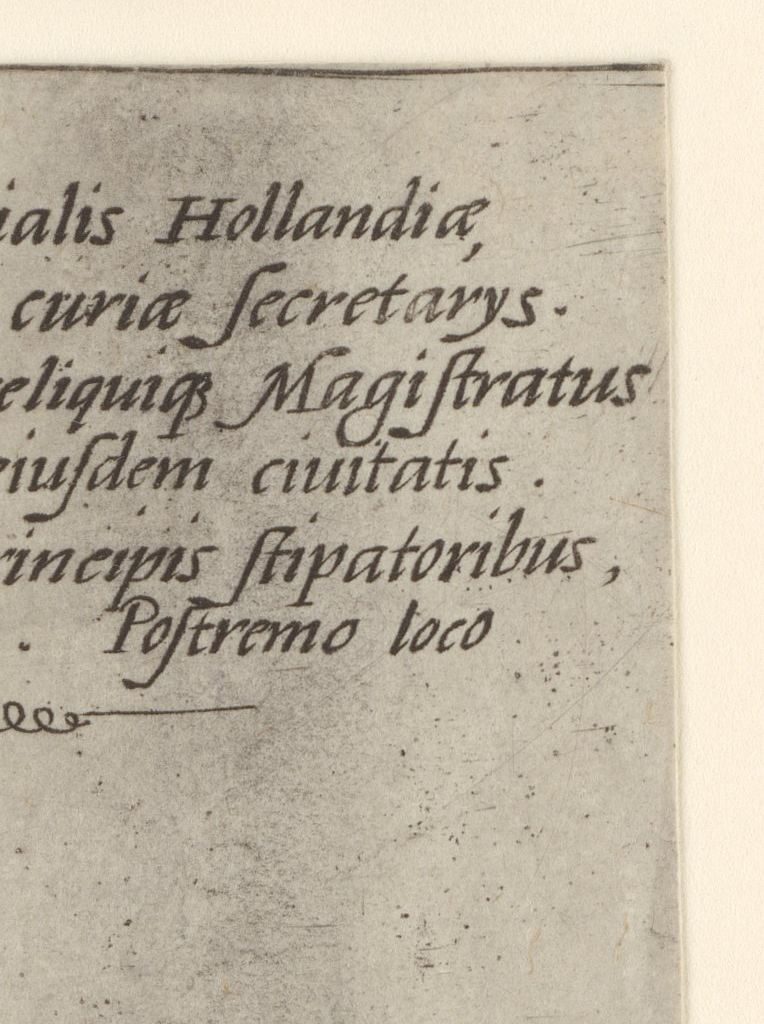 ialis Hollandiæ,
curiæ ſecretarys.
eliquiqȝ Magiſtratus
eiuſdem ciuitatis.
rincipis ſtipatoribus,
. Poſtremo loco